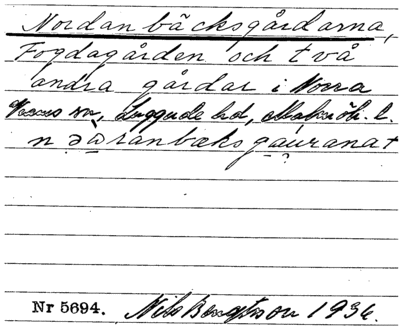 Nordanbäcksgårdarna,
Fogdagården och två
andra gårdar i Norra
sn, Luggude hd, Malmöh. l.
n
Nr 5694. Nils Bengtsson 1936.